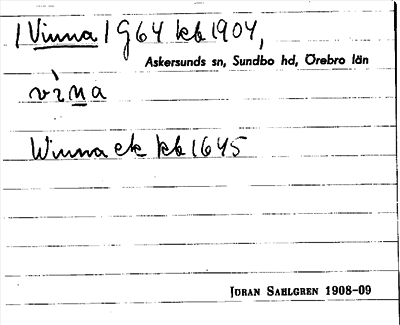 /Vinna/ G64 kb 1904,
Askersunds sn, Sundbo hd, Örebro län
vìna
Winna ek kb 1645
JÖRAN SAHLGREN 1908-09